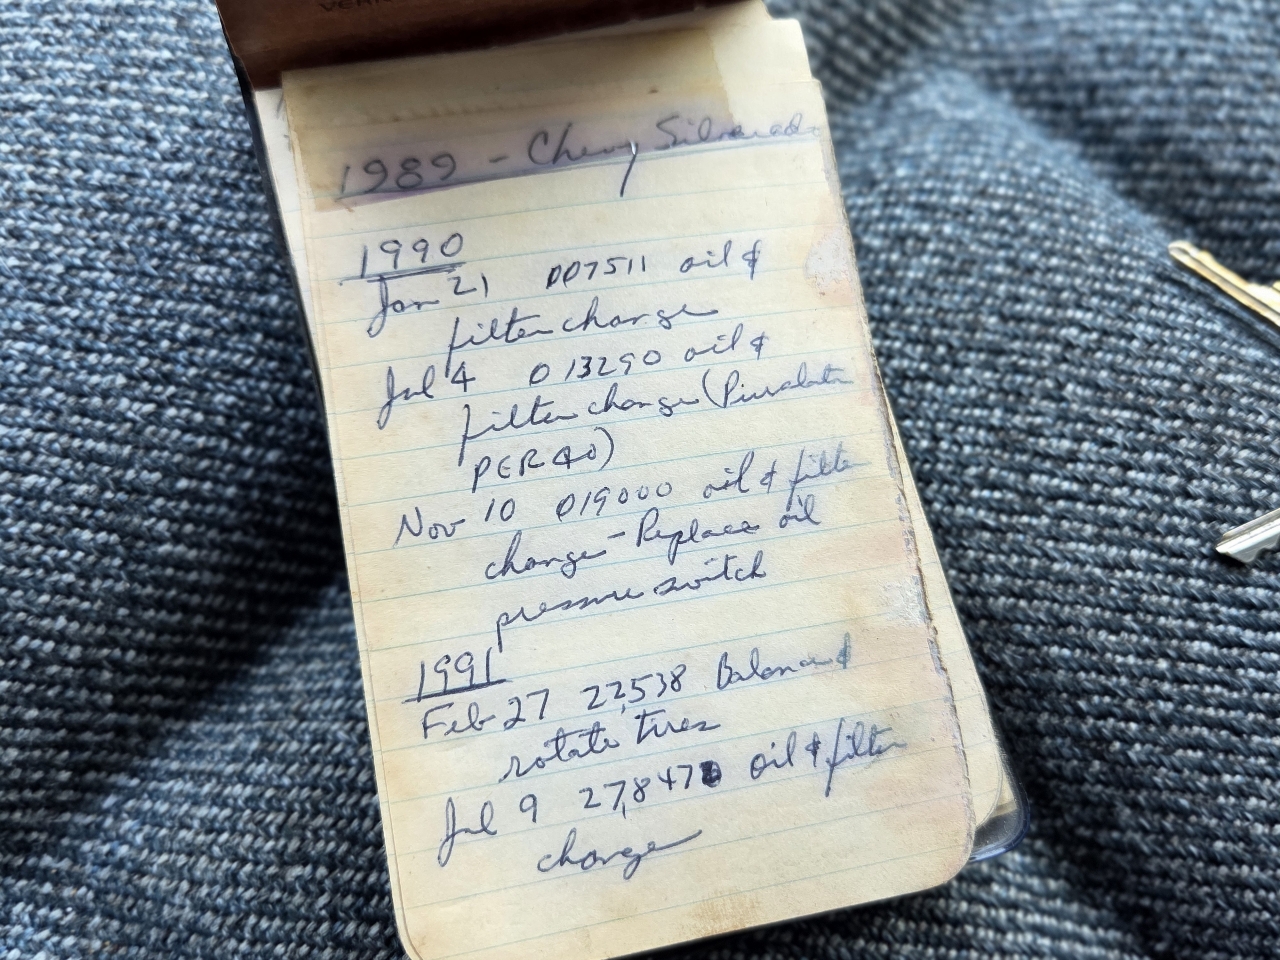 1989 - Chevy Silverado
1990
Jan 21 007511 oil &
filter change
Jul 4 013290 oil &
filter change (Purolator
PER 40)
Nov 10 019000 oil & filter
change - Replace oil
pressure switch
1991
Feb 27 22,538 Balance &
rotate tires
Jul 9 27,847 oil & filter
change